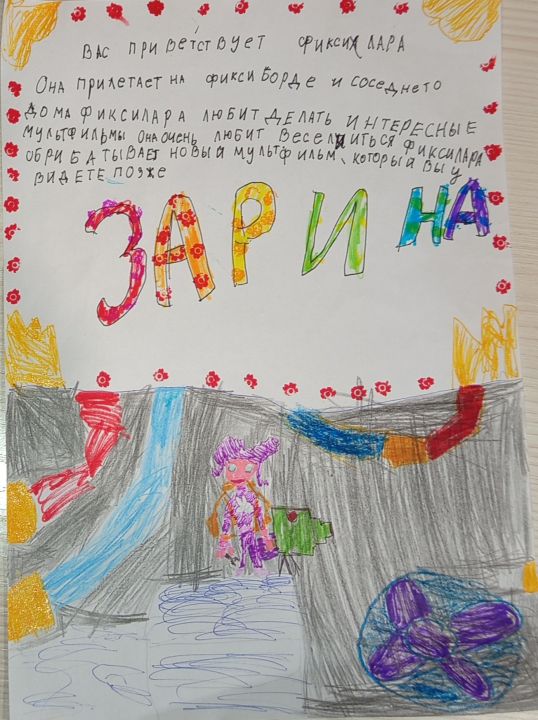 ВАС ПРИВЕТСТВУЕТ ФИКСИ ЛАРА
ОНА ПРИЛЕТАЕТ НА ФИКСИ БОРДЕ И СОСЕДНЕГО
ДОМА ФИКСИЛАРА ЛЮБИТ ДЕЛАТЬ ИНТЕРЕСНЫЕ
МУЛЬТФИЛЬМЫ ОНА ОЧЕНЬ ЛЮБИТ ВЕСЕЛИТЬСЯ ФИКСИЛАРА
ОБРИБАТЫВАЕТ НОВЫЙ МУЛЬТФИЛЬМ, КОТОРЫЙ ВЫ У
ВИДЕТЕ ПОЗЖЕ
ЗАРИНА